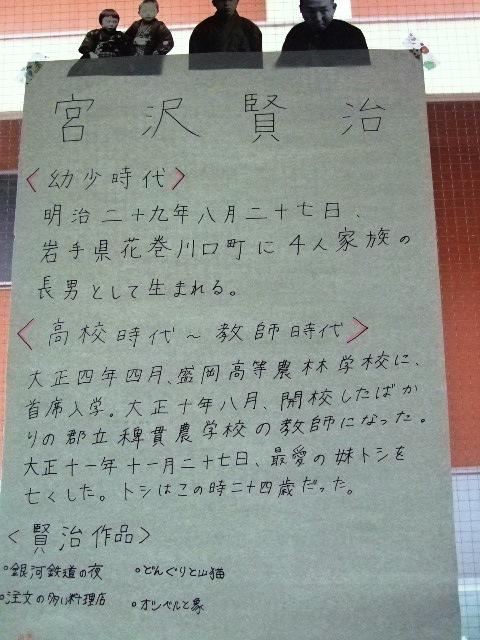 宮沢賢治
<幼少時代>
明治二十九年八月二十七日、
岩手県花巻川口町に4人家族の
長男として生まれる。
<高校時代~教師時代>
大正四年四月、盛岡高等農林学校に、
首席入学。大正十年八月、開校したばか
りの郡立稗貫農学校の教師になった。
大正十一年十一月二十七日、最愛の妹トシを
亡くした。トシはこの時二十四歳だった。
<賢治作品>
°銀河鉄道の夜 °どんぐりと山猫
°注文の多い料理店 °オツベルと象